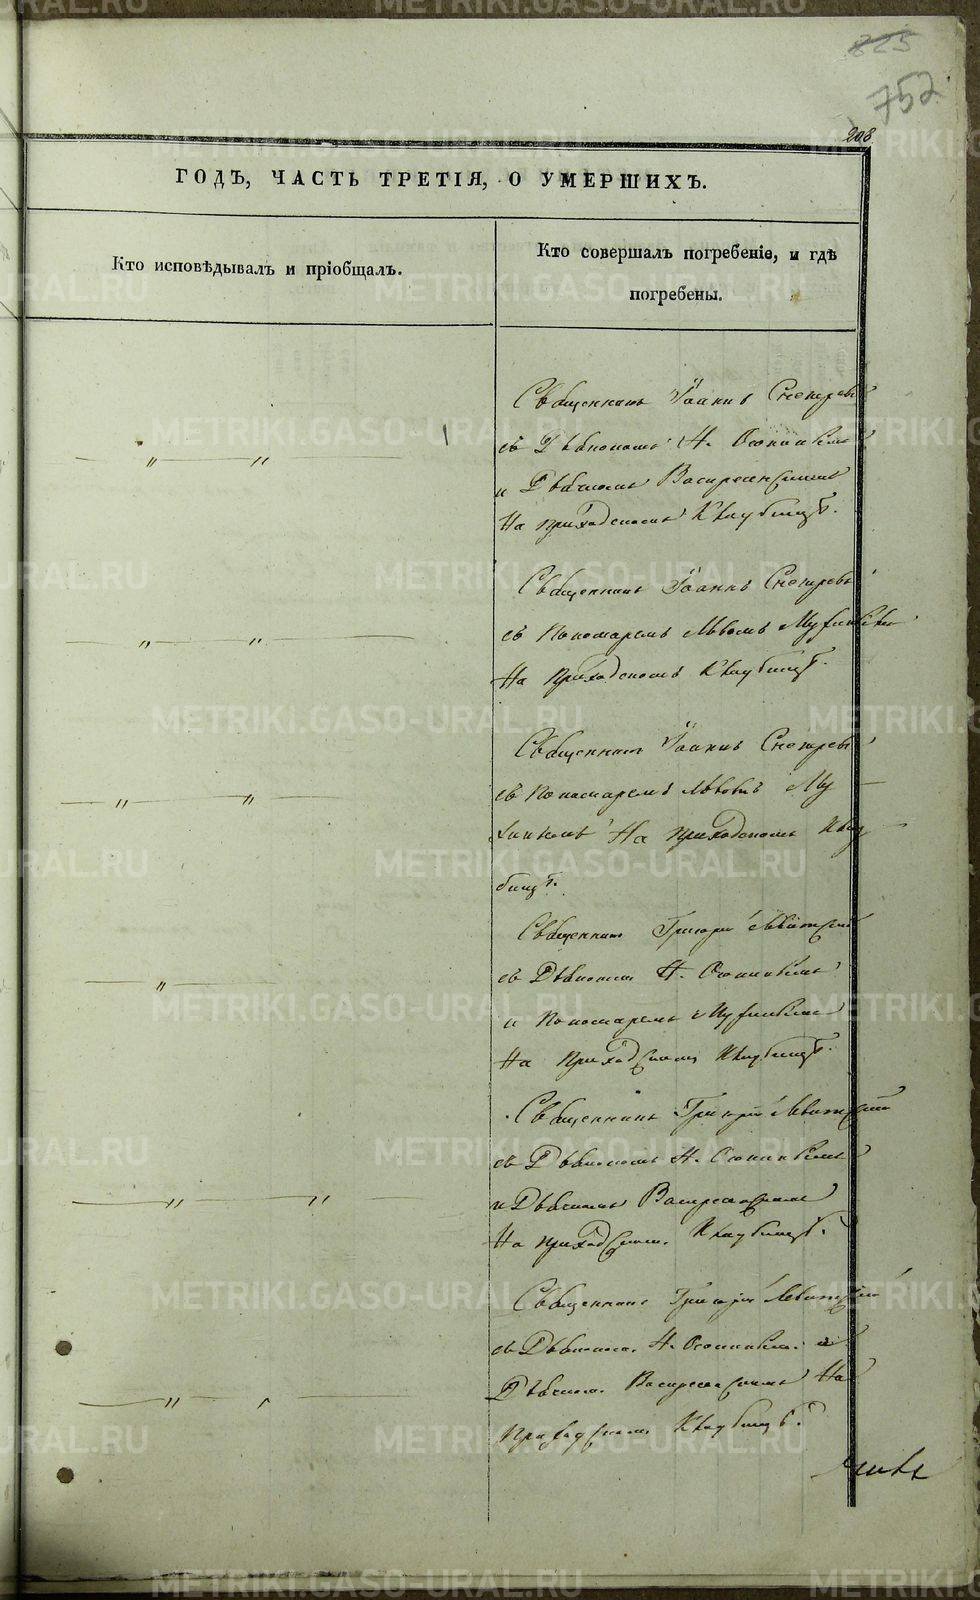 METRIKI.GASO-URAL.RU
825
752
208
ГОДЪ, ЧАСТЬ ТРЕТІЯ, О УМЕРШИХЪ.
Кто исповѣдывалъ и пріобщалъ.
Кто совершалъ погребеніе, и гдѣ
погребены.
Священникъ Іоаннъ
съ Діакономъ Н.
и Дьячкомъ Воскресенскимъ
На приходскомъ Кладбищѣ.
Священникъ Іоаннъ
съ Пономаремъ Львомъ
На приходскомъ Кладбищѣ.
Священникъ Іоаннъ
съ Пономаремъ Львомъ
На приходскомъ Клад
бищѣ.
Священникъ Григорій Левитскій
съ Діакономъ Н.
и Пономаремъ
На Приходскомъ Кладбищѣ.
Священникъ Григорій Левитскій
съ Діакономъ Н.
и Дьячкомъ Воскресенскимъ
На приходскомъ Кладбищѣ.
Священникъ Григорій Левитскій
съ Діакономъ Н. и
Дьячкомъ Воскресенскимъ На
Приходскомъ Кладбищѣ.